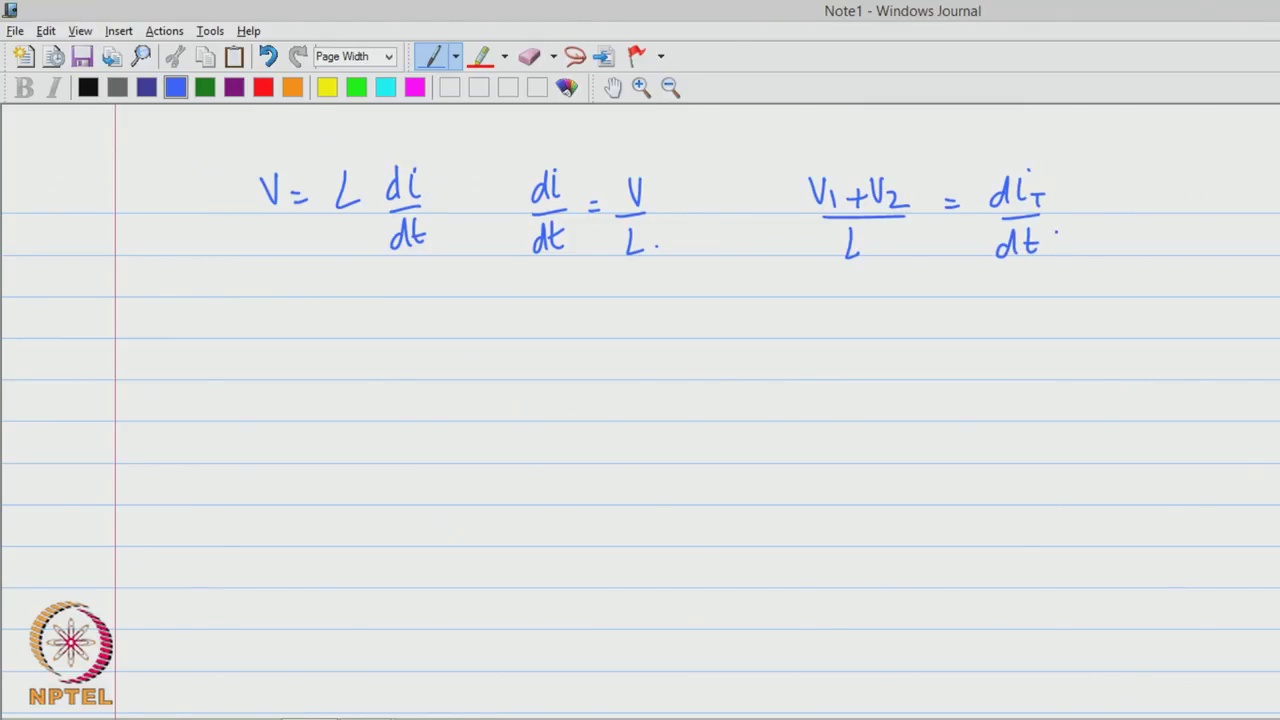 Note1 - Windows Journal
File Edit View Insert Actions Tools Help
Page Width
B I
V = L di/dt di/dt = V/L. (V1+V2)/L = diT/dt.
NPTEL